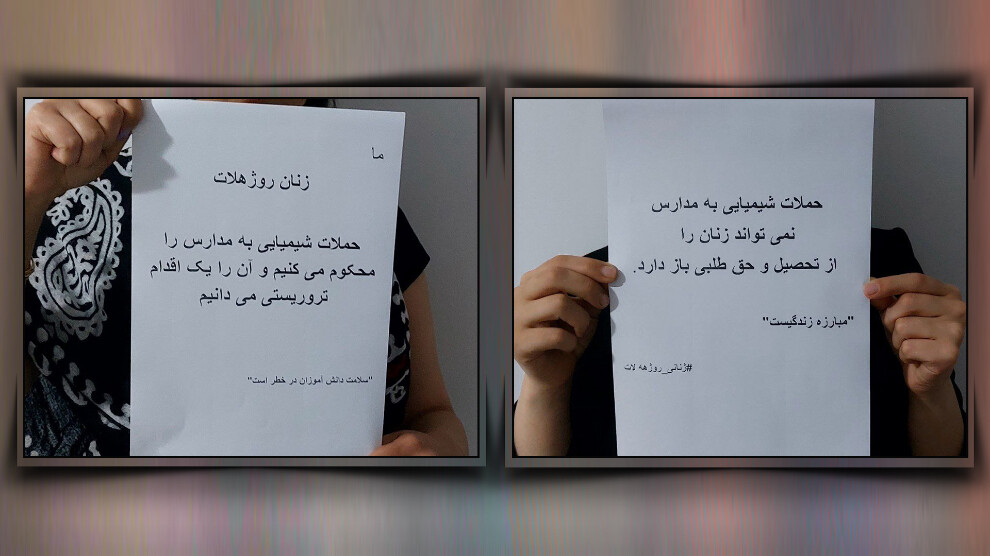 ما
زنان روژهلات
حملات شیمیایی به مدارس را
محکوم می کنیم و آن را یک اقدام
تروریستی می دانیم
"سلامت دانش آموزان در خطر است"
حملات شیمیایی به مدارس
نمی تواند زنان را
از تحصیل و حق طلبی باز دارد.
"مبارزه زندگیست"
#ژنانی_روژهه لات